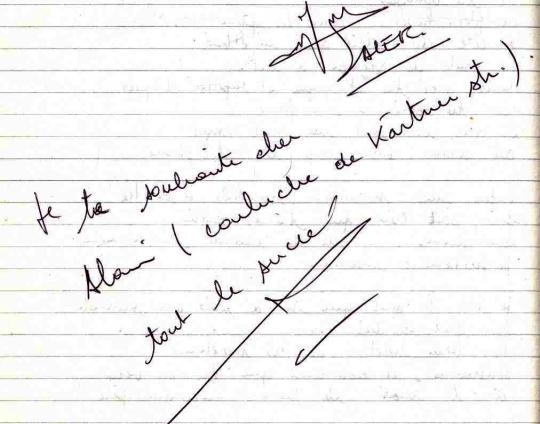 JALEK
Je te souhaite cher
Alain (couluche de Kärtner str.).
tout le succe